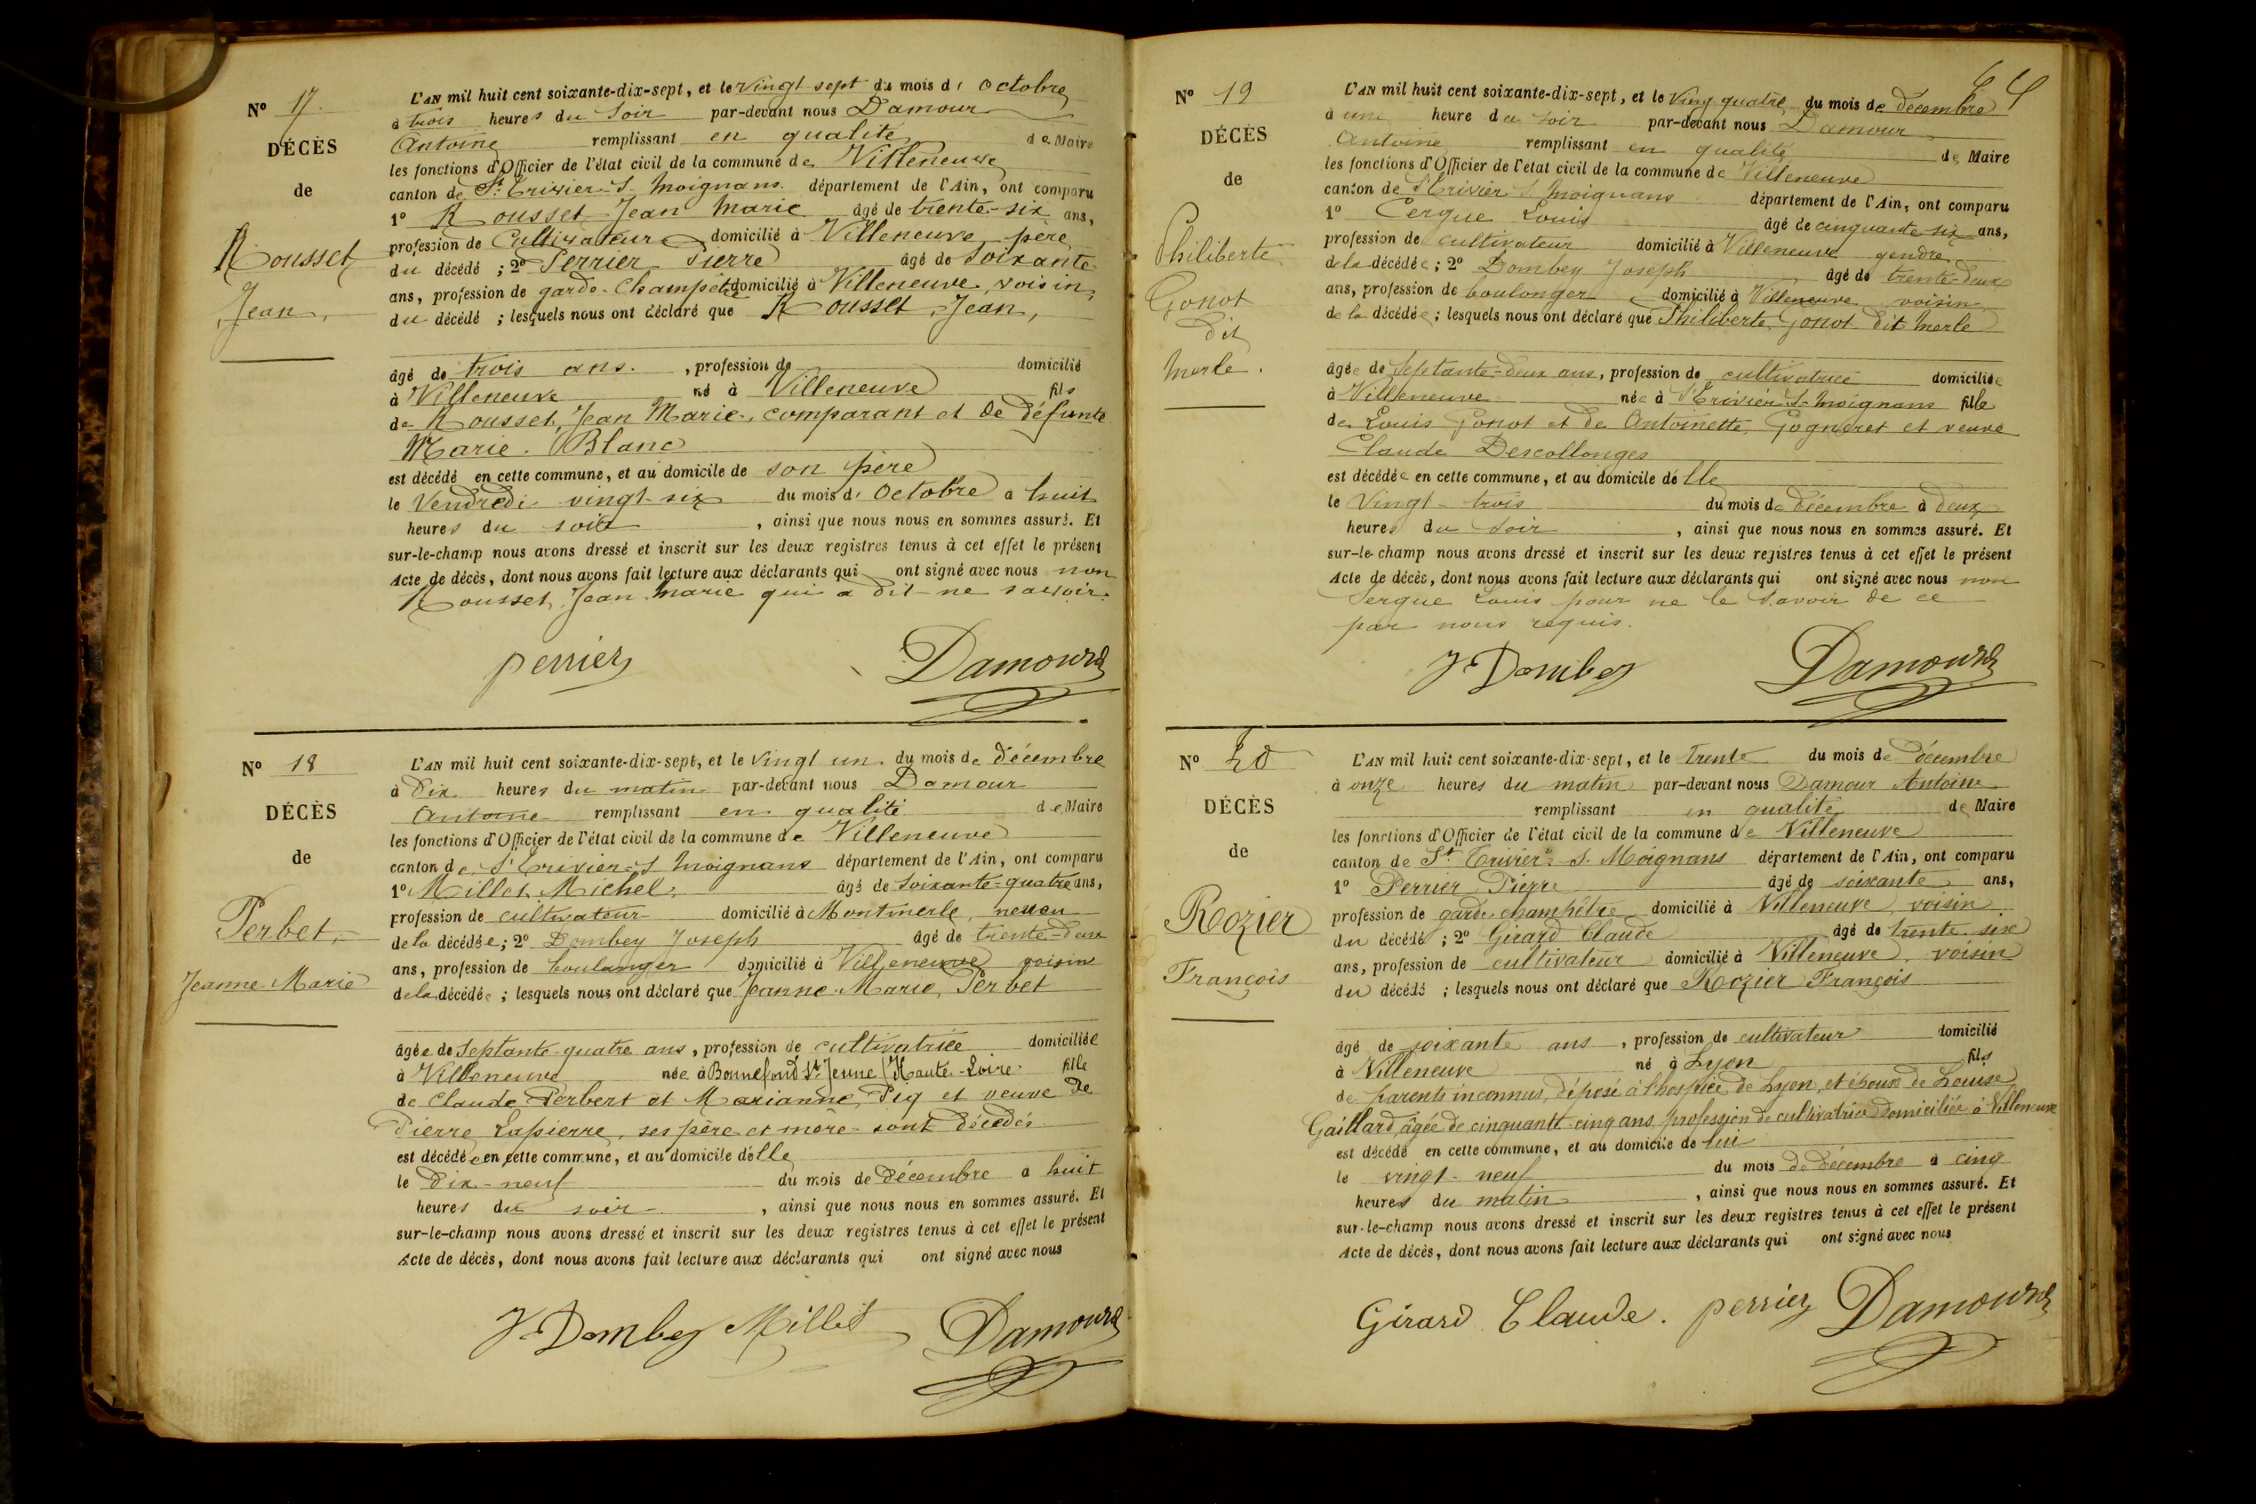 Nº 17.
DÉCÈS
de
Rousset
Jean,
L'AN mil huit cent soixante-dix-sept, et le vingt sept du mois d' octobre
à trois heures du soir par-devant nous Damour
Antoine remplissant en qualité de Maire
les fonctions d'Officier de l'état civil de la commune de Villeneuve
canton de St Trivier-S-Moignans département de l'Ain, ont comparu
1º Rousset Jean Marie âgé de trente-six ans,
profession de Cultivateur domicilié à Villeneuve, père
du décédé ; 2º Perrier Pierre âgé de soixante
ans, profession de garde-Champêtre domicilié à Villeneuve, voisin,
du décédé ; lesquels nous ont déclaré que Rousset, Jean,
âgé de trois ans. , profession de domicilié
à Villeneuve né à Villeneuve fils
de Rousset, Jean Marie, comparant et de défunte
Marie. Blanc
est décédé en cette commune, et au domicile de son père
le Vendredi vingt-six du mois d' Octobre à huit
heures du soir , ainsi que nous nous en sommes assuré. Et
sur-le-champ nous avons dressé et inscrit sur les deux registres tenus à cet effet le présent
Acte de décès, dont nous avons fait lecture aux déclarants qui ont signé avec nous non
Rousset, Jean Marie qui a dit ne savoir.
perrier Damour
Nº 18
DÉCÈS
de
Perbet,
Jeanne-Marie
L'AN mil huit cent soixante-dix-sept, et le vingt un du mois de décembre
à dix heures du matin par-devant nous Damour
Antoine remplissant en qualité de Maire
les fonctions d'Officier de l'état civil de la commune de Villeneuve
canton de St Trivier-S-Moignans département de l'Ain, ont comparu
1º Millet Michel, âgé de soixante-quatre ans,
profession de cultivateur domicilié à Montmerle, neveu
de la décédée ; 2º Dombey Joseph âgé de trente-deux
ans, profession de boulanger domicilié à Villeneuve voisin
de la décédée ; lesquels nous ont déclaré que Jeanne-Marie, Perbet
âgée de septante-quatre ans, profession de cultivatrice domiciliée
à Villeneuve née à Bonnefond St Jeune (Haute-Loire. fille
de Claude Perbert et Marianne Pig et veuve de
Pierre Lapierre, ses père et mère sont décédés
est décédée en cette commune, et au domicile d'elle
le dix-neuf du mois de décembre à huit
heures du soir , ainsi que nous nous en sommes assuré. Et
sur-le-champ nous avons dressé et inscrit sur les deux registres tenus à cet effet le présent
Acte de décès, dont nous avons fait lecture aux déclarants qui ont signé avec nous
J. Dombey Millet Damour
64
Nº 19
DÉCÈS
de
Philiberte
Gonot
dit
Merle.
L'AN mil huit cent soixante-dix-sept, et le ving quatre du mois de décembre
à une heure du soir par-devant nous Damour
Antoine remplissant en qualité de Maire
les fonctions d'Officier de l'état civil de la commune de Villeneuve
canton de St Trivier S Moignans département de l'Ain, ont comparu
1º Cergue Louis âgé de cinquante six ans,
profession de cultivateur domicilié à Villeneuve gendre
de la décédée ; 2º Dombey Joseph âgé de trente-deux
ans, profession de boulonger domicilié à Villeneuve voisin
de la décédée ; lesquels nous ont déclaré que Philiberte, Gonot dit Merle
âgée de septante-deux ans, profession de cultivatrice domiciliée
à Villeneuve née à St Trivier S-Moignans fille
de Louis Gonot et de Antoinette, Gogneret et veuve
Claude Descollonges
est décédée en cette commune, et au domicile d'elle
le vingt-trois du mois de décembre à deux
heures du soir , ainsi que nous nous en sommes assuré. Et
sur-le-champ nous avons dressé et inscrit sur les deux registres tenus à cet effet le présent
Acte de décès, dont nous avons fait lecture aux déclarants qui ont signé avec nous non
Sergue Louis pour ne le savoir de ce
par nous requis.
J. Dombey Damour
Nº 20
DÉCÈS
de
Rozier
François
L'AN mil huit cent soixante-dix-sept, et le trente du mois de Décembre
à onze heures du matin par-devant nous Damour Antoine
remplissant en qualité de Maire
les fonctions d'Officier de l'état civil de la commune de Villeneuve
canton de St Trivier-S. Moignans département de l'Ain, ont comparu
1º Perrier Pierre âgé de soixante ans,
profession de garde champêtre domicilié à Villeneuve voisin
du décédé ; 2º Girard Claude âgé de trente six
ans, profession de cultivateur domicilié à Villeneuve, voisin
du décédé ; lesquels nous ont déclaré que Rozier François
âgé de soixante ans , profession de cultivateur domicilié
à Villeneuve né à Lyon fils
de parents inconnus, déposé à l'hospice de Lyon, et époux de Louise
Gaillard, âgée de cinquante-cinq ans, profession de cultivatrice domiciliée à Villeneuve
est décédé en cette commune, et au domicile de lui
le vingt-neuf du mois de décembre à cinq
heures du matin , ainsi que nous nous en sommes assuré. Et
sur-le-champ nous avons dressé et inscrit sur les deux registres tenus à cet effet le présent
Acte de décès, dont nous avons fait lecture aux déclarants qui ont signé avec nous
Girard Claude. perrier Damour